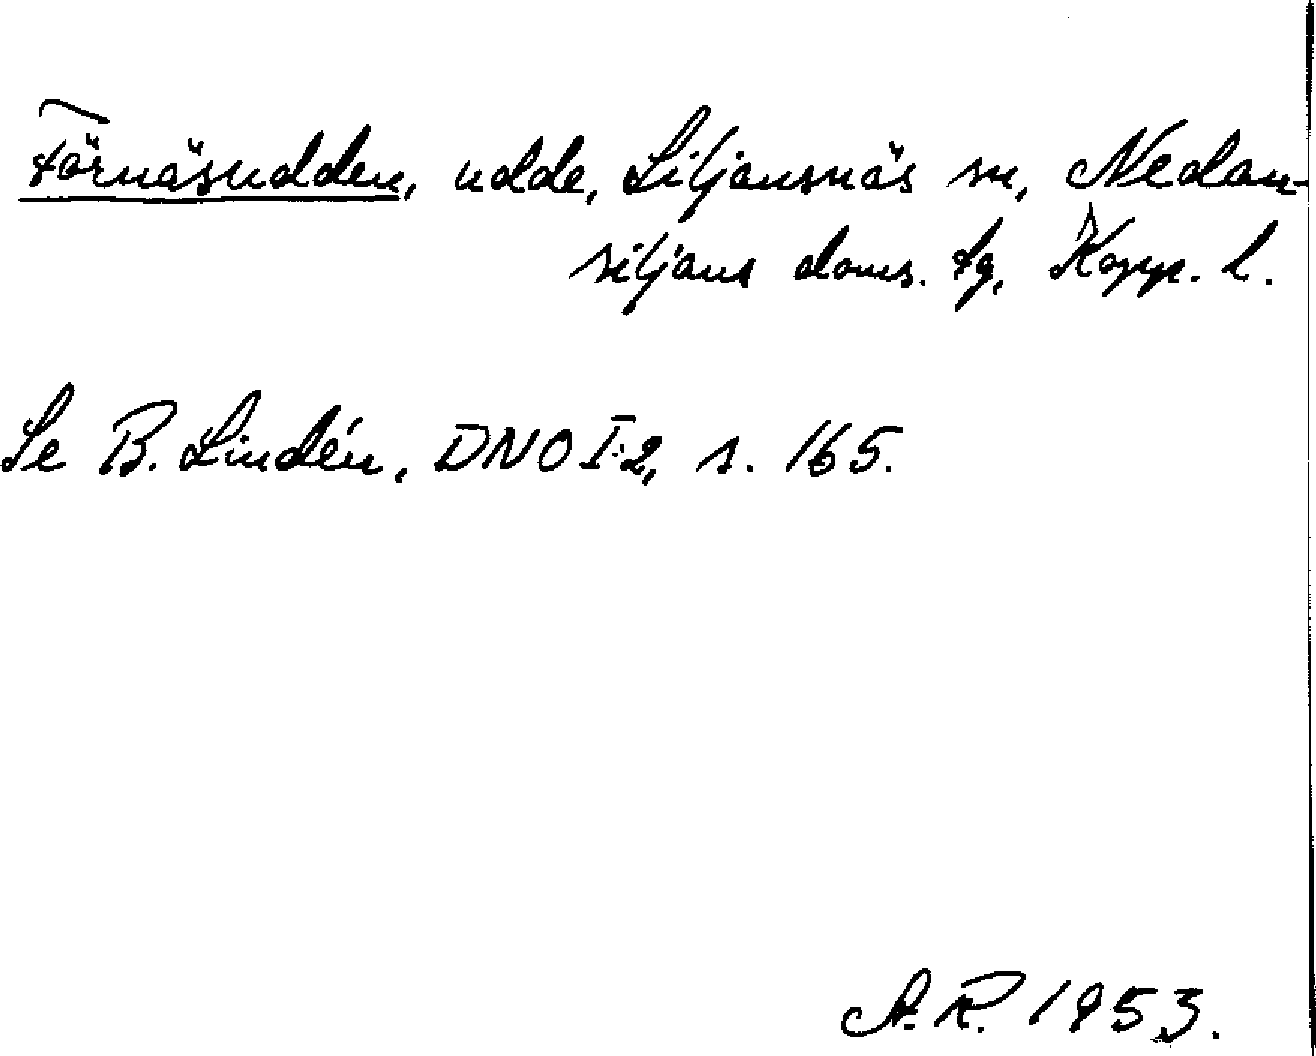 Förnäsudden, udde, Siljansnäs sn, Nedan-
siljans doms. tg, Kopp. l.
Se B. Lindén, DNO I:2, s. 165.
A. R. 1953.